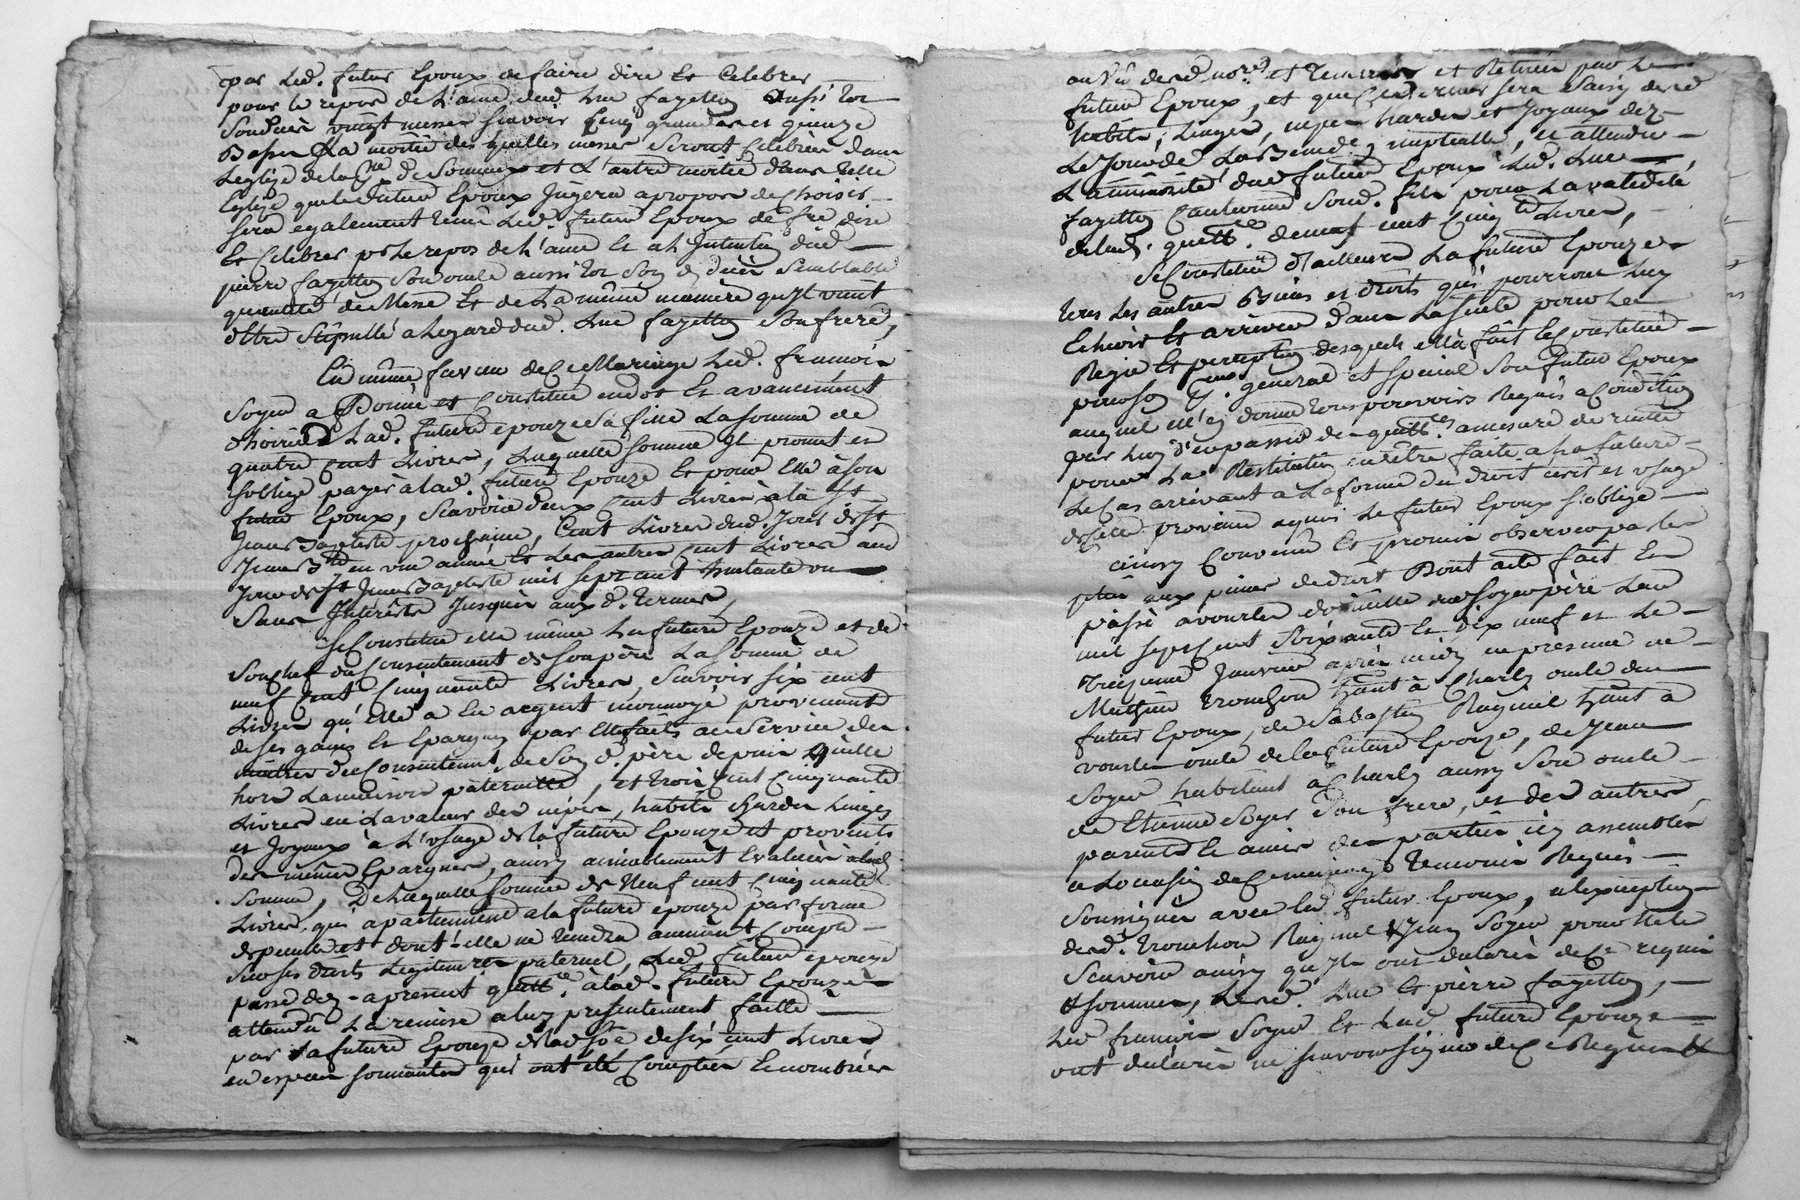 par led. futur Epoux de faire dire Et Celebrer
pour le repos de L'ame dud. Luc fayetton aussi tot
Son deces vingt messes scavoir Cinq grandes et quinze
Basses La moitié des quelles messes seront Celebrées dans
L'eglize de la de Sommaux et L'autre moitié dans telle
Eglize que le d. futur Epoux Jugera apropos de choisir
sera egalement tenu Led. futur Epoux de fre dire
Et Celebrer pr le repos de L'ame Et a L'Intention dud
pierre fayetton Son oncle aussi tot Son d. deces semblable
quantité de Messe Et de La même manière qu'Il vient
d'Etre Stipullé a Legard dud. Luc fayetton Son frere,
En même faveur de Ce Mariage Led. francois
Soyer a Donné et Constitué en dot Et avancement
d'hoirie a Lad. future epouze sa fille La somme de
quatre Cent Livres, Laquelle somme Il promet et
s'oblige payer a lad. future Epouze Et pour Elle à son
futur Epoux, Scavoir deux Cent Livres à la St
Jean Baptiste prochaine, Cent Livres dud. Jour de St
Jean Bte en une année Et Les autres Cent Livres aud
Jour de St Jean Baptiste mil sept cent huitante un
Sans Interêts Jusques aux d. termes,
Se Constitue elle même La future Epouze et de
Son Chef du Consentement de son père La somme de
neuf Cent Cinquante Livres, Scavoir six cent
Livres qu'Elle a En argent monnoyé provenant
de ses gains Et Epargnes par Elle faits au Service des
maitres du Consentement de Son d. père depuis qu'elle
hors La maison paternelle, et trois Cent Cinquante
Livres en La valeur des nipes, habits hardes Linges
et Joyaux à L'usage de la future Epouze et provenus
des mêmes Epargnes, ainsy amiablement Evalués à lad.
Somme, De Laquelle somme de Neuf cent Cinquante
Livres qui apartiennent a la future epouze par forme
de pecule et dont elle ne tiendra aucunt Compte
Sur ses droits Legitimaires paternel, Led. futur epoux
passe dez-apresent quittce à lad. future Epouze
attendu La remise a luy presentement faitte
par la future Epouze de lad. soe de six cent Livres
en especes sonnantes qui ont été Comptées Et nombrées
au Vu desd. nores et temoins et Retirées par Le
futur Epoux, et que Ce dernier sera Saisy desd
habits, Linges, nipes hardes et Joyaux dez
Le Jour de La Bened. nuptialle, et attendu
La minorité dud futur Epoux Led. Luc
fayetton Cautionne Sond. fils pour La validité
de lad. quittce de neuf cent Cinqte Livres,
Se Constitue d'ailleurs La future Epouze
tous Les autres Biens et droits qui pourront Luy
Echoir Et arriver dans La suite pour La
Regie Et perception desquels elle a fait Et Constitué
pour son pr. general et special Son futur Epoux
auquel Elle donne tous pouvoirs Requis a Condition
par Luy d'en passer des quittces amesure de recette
pour La Restitution en être faite a La future
Le Cas arrivant a La forme du droit ecrit et usage
de cette province aquoi Le futur Epoux s'oblige
ainsy Convenu Et promis observer par les
pties aux peines de droit Dont acte fait Et
passé a vourles domicille dud Soyer père L'an
mil sept cent Soixante Et dix neuf et Le
treizieme Janvier après midy en presence de
Mathieu tronchon hant à Charly oncle du
futur Epoux, de Sabastien Raginel hant à
vourles oncle de la future Epouze, de Jean
Soyer habitant a Charly aussy Son oncle
de Etienne Soyer Son frere, et des autres
parents Et amis des parties icy assemblés
a Loccasion de Ce mariage temoins Requis
Soussignés avec Led futur Epoux, a l'exception
desd. tronchon Raginel & Jean Soyer pour ne le
Scavoir ainsy qu'Ils ont declaré de Ce requis
& sommés, Lesd. Luc Et pierre fayetton,
Led francois Soyer Et Lad future Epouze
ont declaré ne scavoir signer de Ce Requis &